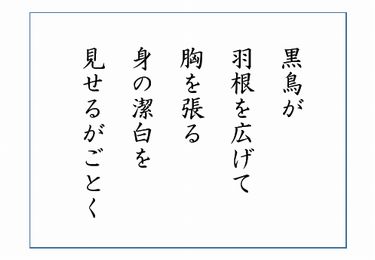 黒鳥が
羽根を広げて
胸を張る
身の潔白を
見せるがごとく